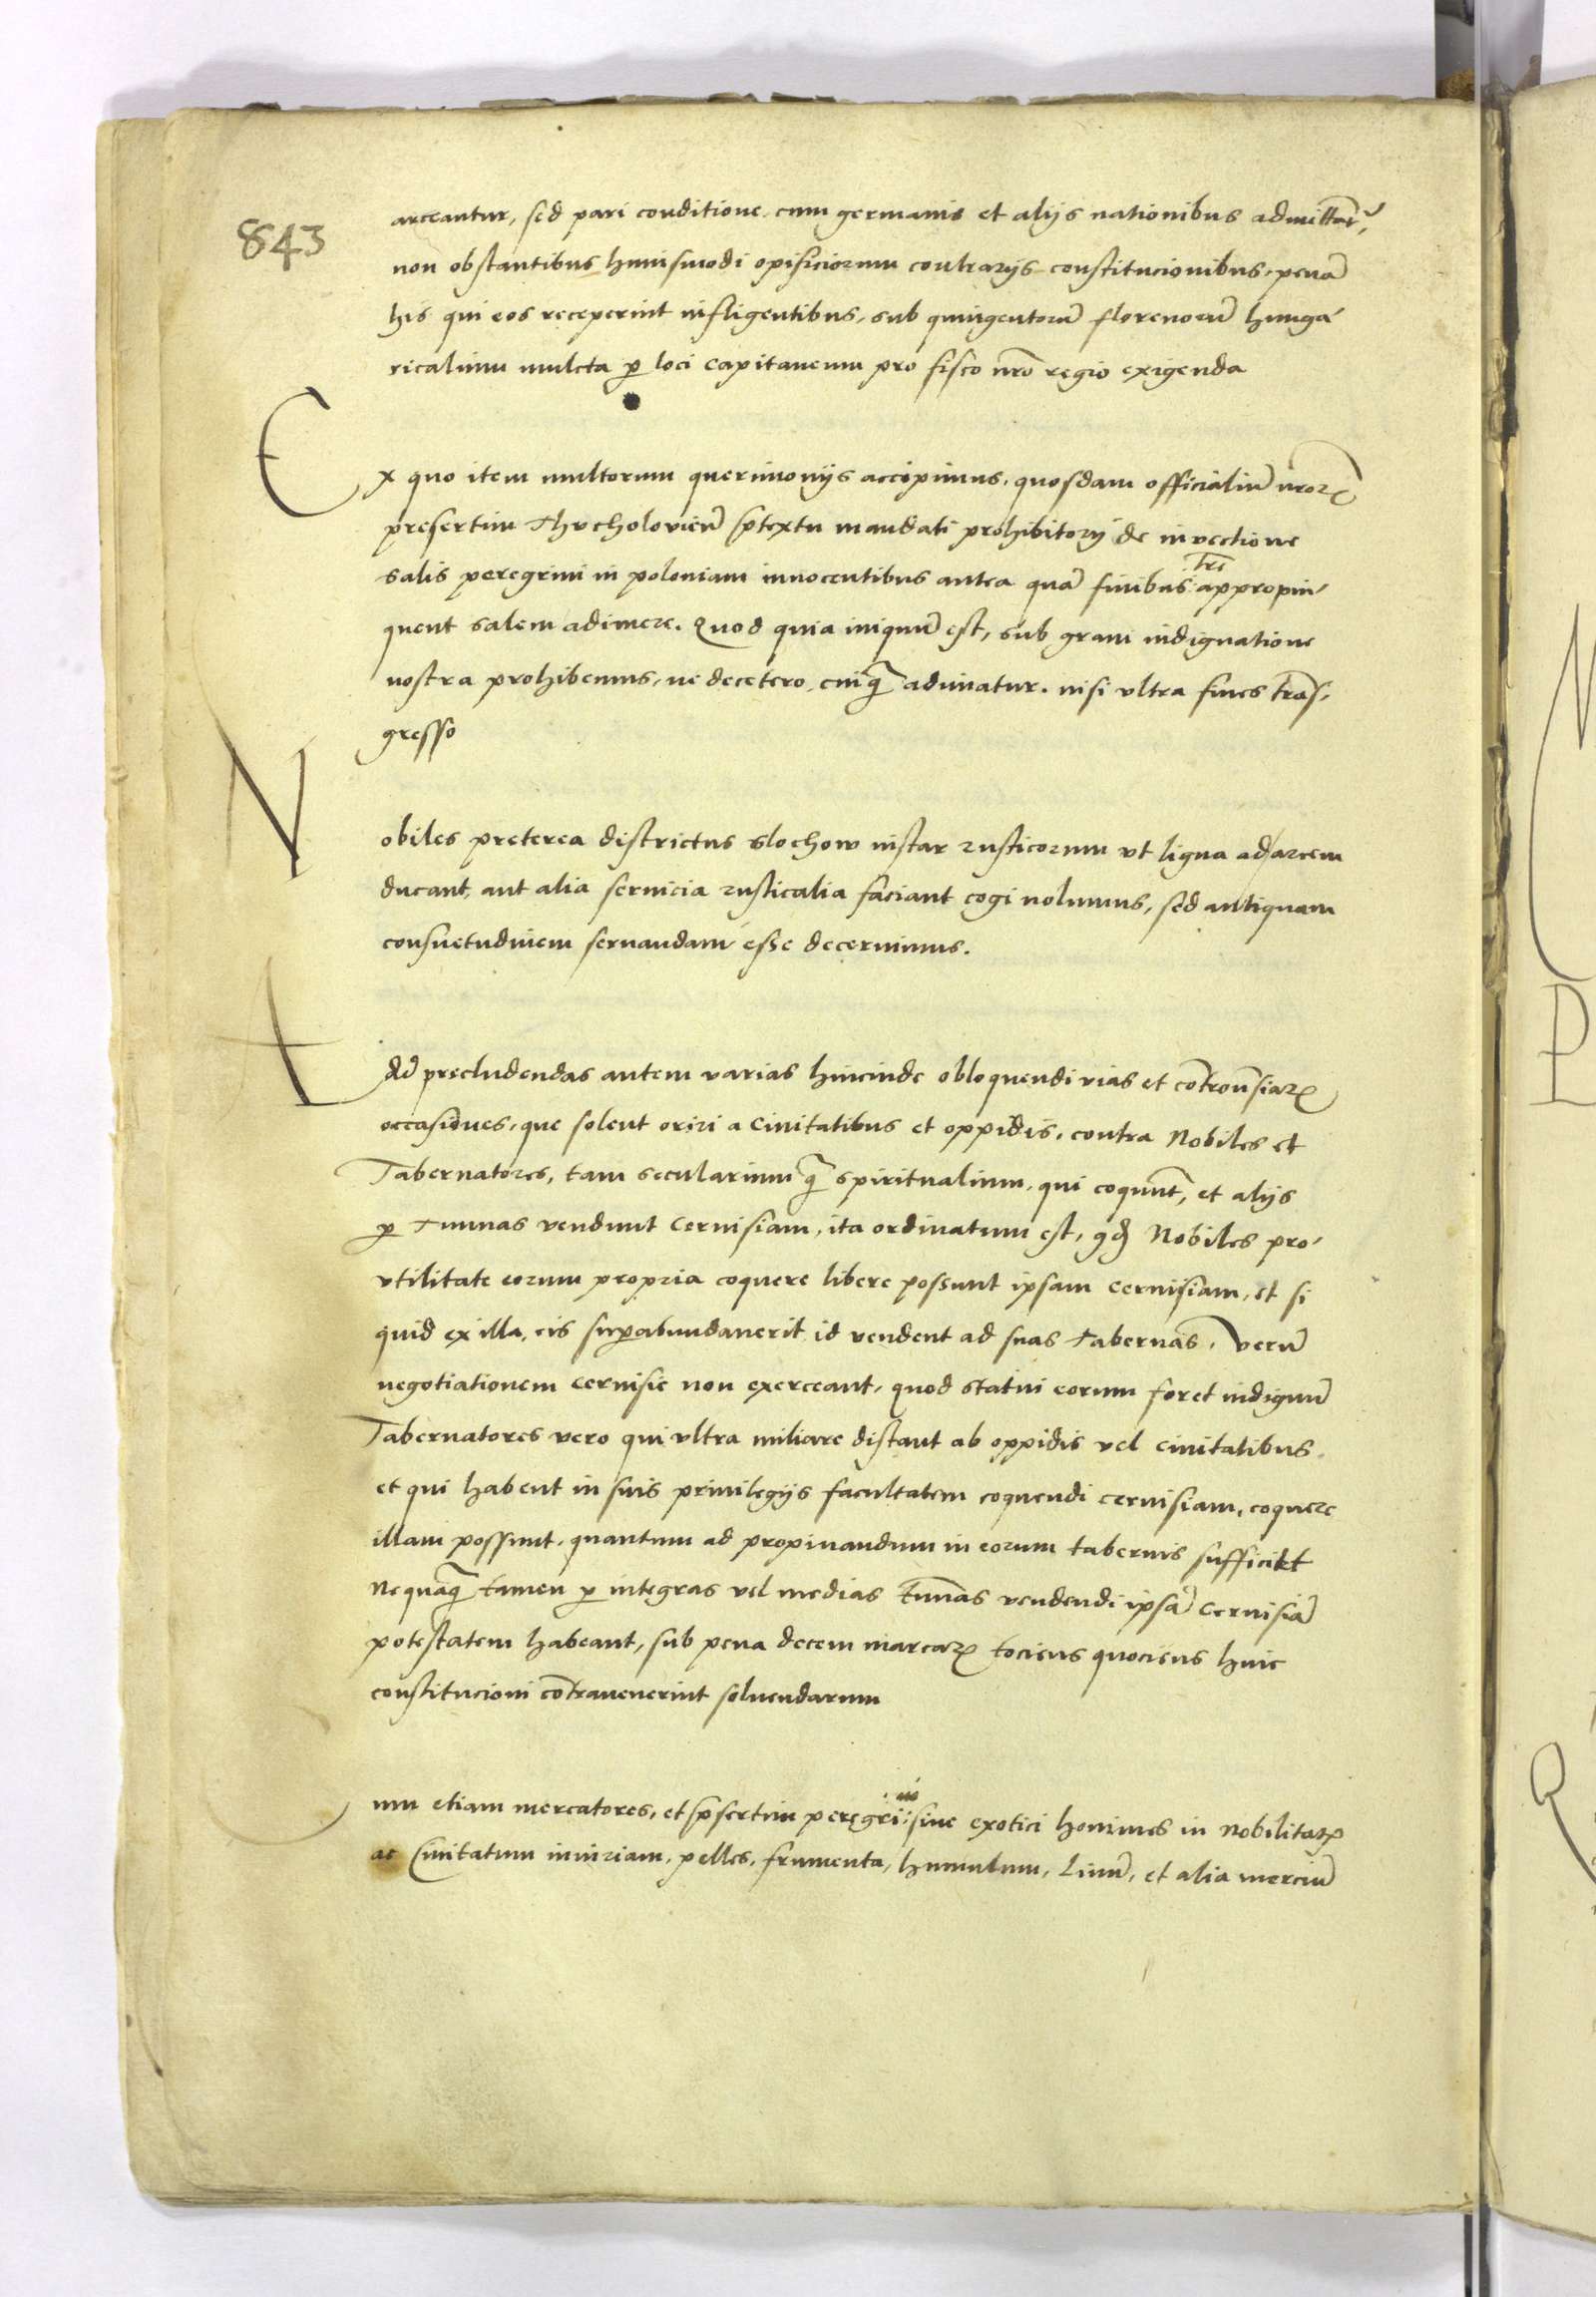 843
arceantur, sed pari conditione cum germanis et alijs nationibus admittãr,
non obstantibus huiusmodi opificiorum contrarijs constitucionibus, penã
his qui eos receperint infligentibus, sub quingentorũ florenorũ hunga-
ricalium mulcta p̱ loci capitaneum pro fisco nr̃o regio exigenda
Ex quo item multorum querimonijs accipimus, quosdam officialiũ nr̃oꝝ
presertim Thucholovieñ p̃textu mandati prohibitorij de invectione
salis peregrini in poloniam innocentibus antea quã finibus tr̃e appropin-
quent salem adimere. Quod quia iniquũ est, sub graui indignatione
nostra prohibemus, ne decetero cuiq̃ adimatur. nisi vltra fines trãs-
gresso
Nobiles preterea districtus Slochow instar rusticorum vt ligna ad arcem
ducant, aut alia seruicia rusticalia faciant cogi nolumus, sed antiquam
consuetudinem seruandam esse decernimus.
Ad precludendas autem varias hincinde obloquendi vias et cõtrou̾siaꝝ
occasiones, que solent oriri a Ciuitatibus et oppidis, contra Nobiles et
Tabernatores, tam secularium q̃ spiritualium, qui coqunt, et alijs
p̱ Tunnas vendunt Ceruisiam, ita ordinatum est, ꝙ Nobiles pro-
vtilitate eorum propria coquere libere possunt ipsam ceruisiam, et si
quid ex illa, eis sup̱abundauerit id vendent ad suas Tabernas. Verũ
negotiationem ceruisie non exerceant, quod statui eorum foret indignũ
Tabernatores vero qui vltra miliare distant ab oppidis vel ciuitatibus.
et qui habent in suis priuilegijs facultatem coquendi ceruisiam, coquere
illam possunt, quantum ad propinandum in eorum tabernis sufficiet
Nequãq̃ tamen p̱ integras vel medias tunnas vendendi ipsã Ceruisiã
potestatem habeant, sub pena decem marcaꝝ tociens quociens huic
constitucioni cõtrauenerint soluendarum
Cum etiam mercatores, et p̃sertim peregrini siue exotici homines in Nobilitatꝭ
ac Ciuitatum iniuriam, pelles, frumenta, humulum, Linũ, et alia merciũ